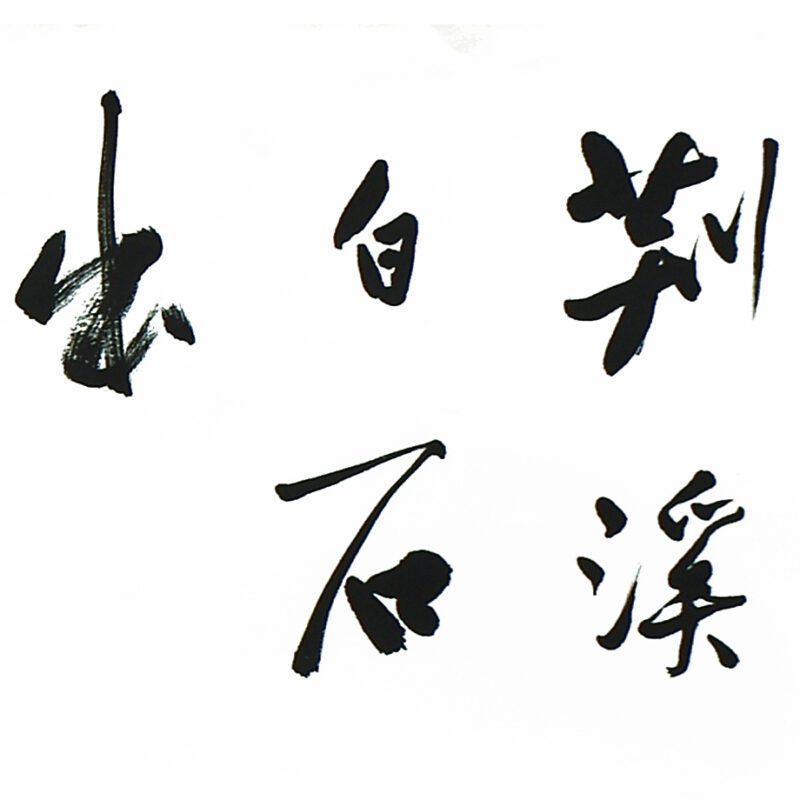 荆溪
白石
出